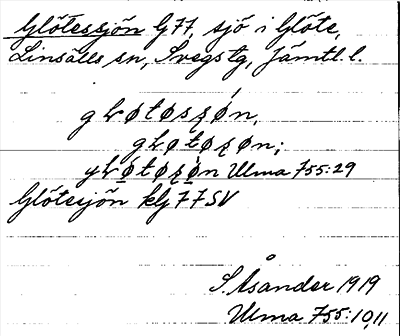 Glötessjön G77, sjö i Glöte,
Linsälls sn, Svegs tg, Jämtl. l.
gƚøtøsʂøn,
gƚøtøʂøn;
gƚøtøʂøn Ulma 755:29
Glötesjön kbj77SV
S. Åsander 1919
Ulma 755:10,11